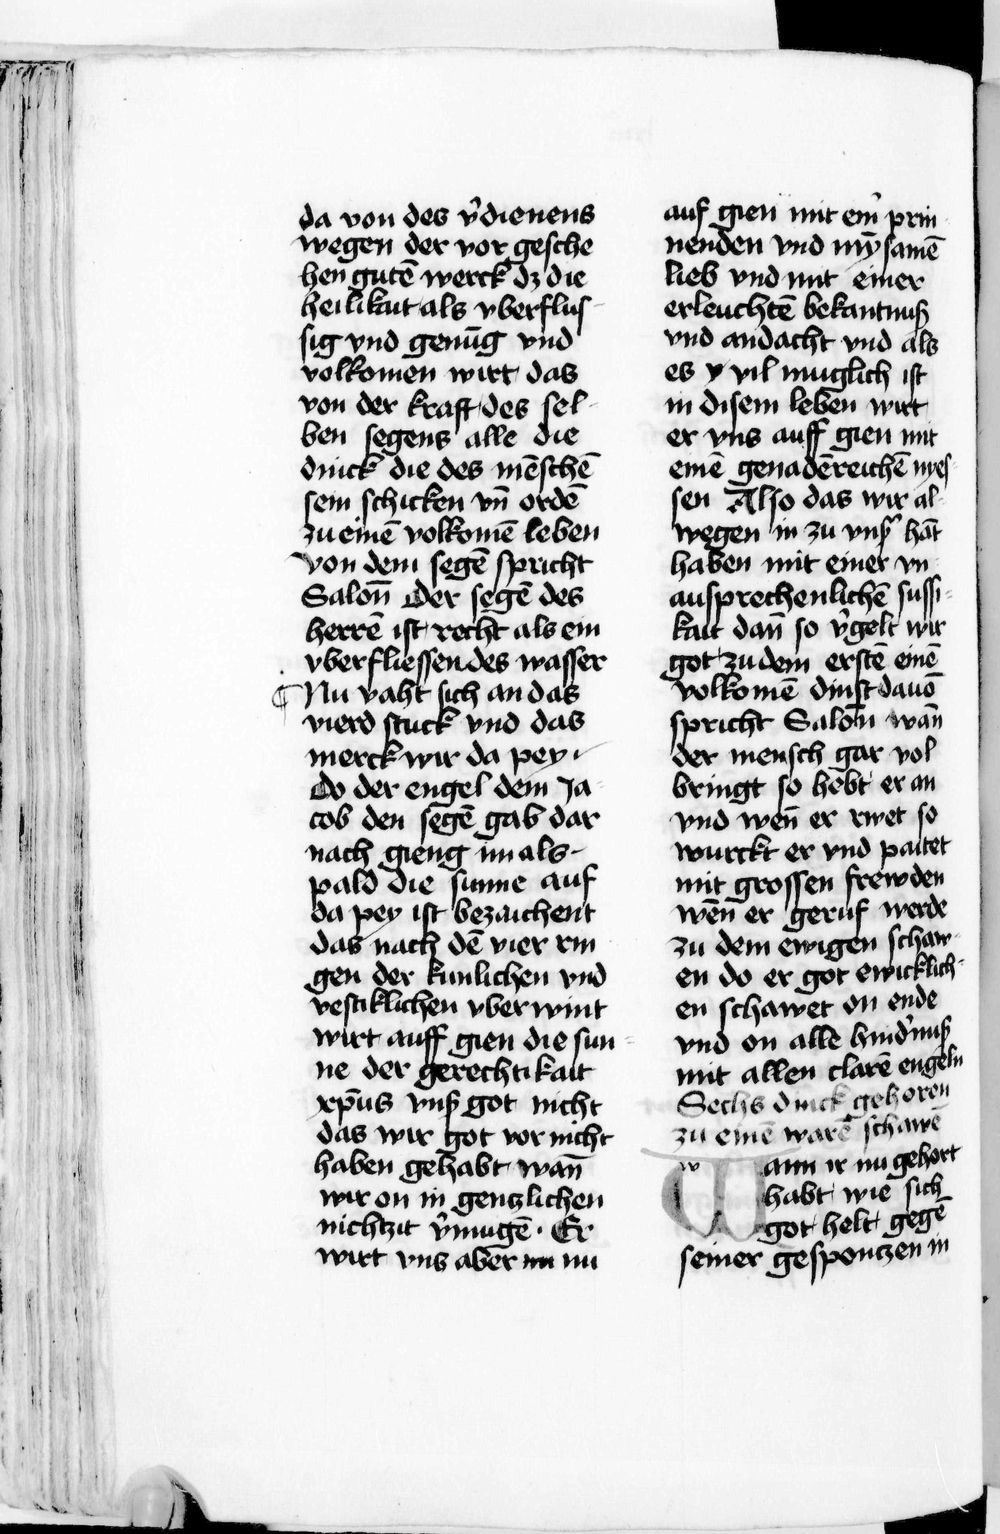 da von des v̉dienens
wegen der vor gesche
hen gutē werck dz die
heilikait als vberflus-
sig vnd genūg vnd
volkomen wirt das
von der kraft des sel-
ben segens alle die
dinck die des mēschē
sein schicken vn̄ ordē
zu einē volkomē leben
von dem segē spricht
Salon̄ Der segē des
herrē ist recht als ein
vberfliessendes wasser
¶ Nu vaht sich an das
vierd stuck vnd das
merck wir da pey ·
Do der engel dem Ja-
cob den segē gab dar
nach gieng im als-
pald die sunne auf
da pey ist bezaichent
das nach dē vier rin
gen der kunlichen vnd
vestiklichen vberwint
wirt auff gien die sun=
ne der gerechtikait
xp̄us vnß got nicht
das wir got vor nicht
haben gehabt wan̄
wir on in gentzlichen
nichtzit v̉mugē · Er
wirt vns aber nu
auf gien mit eim̉ prin
nenden vnd mȳsamē
lieb vnd mit einer
erleuchtē bekantnuß
vnd andacht vnd als
es vil muglich ist
in disem leben wirt
er vns auff gien mit
einē genadēreichē nyes-
sen Also das wir al-
wegen in zu vnß hāt
haben mit einer vn
ausprechenlichē sussi-
kait dan̄ so v̉gelt wir
got zu dem erstē einē
volkomē dinst dauō
spricht Salon̄ wān
der mensch gar vol
bringt so hebt er an
vnd wen̄ er rwet so
wurckt er vnd paitet
mit grossen frewden
wēn̄ er geruf werde
zu dem ewigen schaw-
en do er got ewicklich-
en schawet on ende
vnd on alle hind̉nuß
mit allen clarē engeln
Sechs dinck gehoren
zu einē warē schawē
Wann ir nu gehort
habt wie sich
got helt gegē
seiner gespontzen in